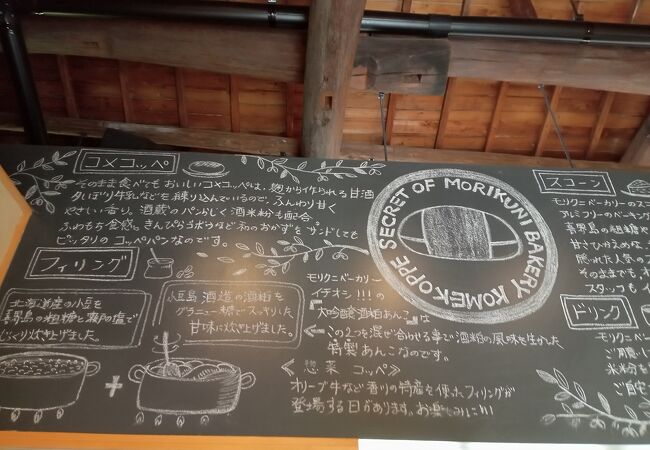 コメコッペ
そのまま食べてもおいしいコメコッペは、麹から作られる甘酒
を練り込んでいるので、ふんわり甘く
やさしい香り。酒蔵のパンらしく酒米粉も配合
ふわもち食感。きんぴら当ほうなど和のおかずをサンドしても
ピッタリのコッペパンなのです。
フィリング
北海道産の小豆を
喜界島の粗糖と の塩で
じっくり炊き上げました。
小豆島酒造の酒粕を
グラニュー糖でスッキリした
甘味に炊き上げました。
モリクニベーカリー
イチオシ!!!の
『吟醸酒粕あんこ』は
この2つを混ぜ合わせる事で酒粕の風味を生かした
特製あんこなのです。
《惣菜 コッペ》
オリーブ牛など香川の特産を使ったフィリングが
登場する日があります。お楽しみに!!!
SECRET OF MORIKUNI BAKERY KOMEKOPPE
スコーン
モリクニベーカリーのス
アルミフリーのベーキング
喜界島の粗糖や
甘さひかえめな、
隠れた人気のス
そのままでも、オ
スタッフもイ
ドリンク
モリクニベー
ご用意し
米粉も
ご自宅